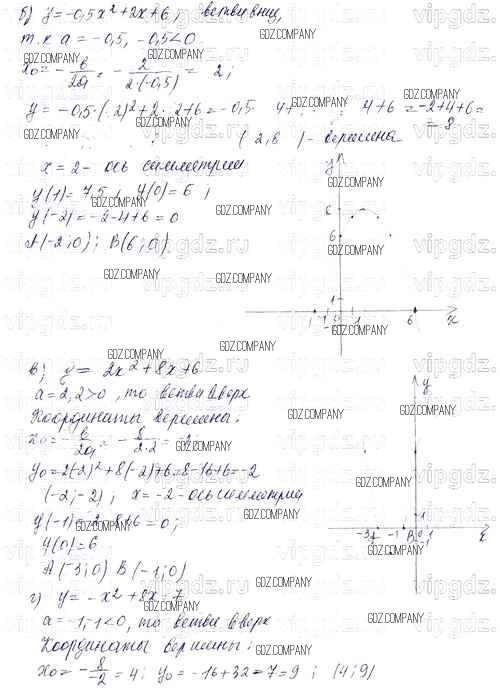 б) y=-0,5x²+2x+6; ветви вниз,
т.к a=-0,5, -0,5<0.
x₀=-b/2a=-2/2·(-0,5)= 2;
y=-0,5·( 2)²+2· 2+6=-0,5 4+ 4+6=-2+4+6=
=8
( 2,8 )- вершина
x=2- ось симметрии
y(1)=7,5; y(0)=6;
y(-2)=-2-4+6=0
A(-2;0); B(6;0)
y
8
6
1
-1 0 1 6 x
в) y= 2x²+8x+6
a=2,2>0, то ветви вверх
Координаты вершины:
x₀=-b/2a=-8/2·2=-2;
y₀=2(-2)²+8(-2)+6=8-16+6=-2
(-2;-2); x=-2-ось симметрии
y(-1)=2-8+6=0;
y(0)=6
A(-3;0) B(-1;0)
y
1
-3 A B 0 1 x
-1
г) y=-x²+8x-7
a=-1,-1<0, то ветви вверх
Координаты вершины:
x₀=-8/-2=4; y₀=-16+32-7=9; (4;9)
GDZ.COMPANY
vipgdz.ru